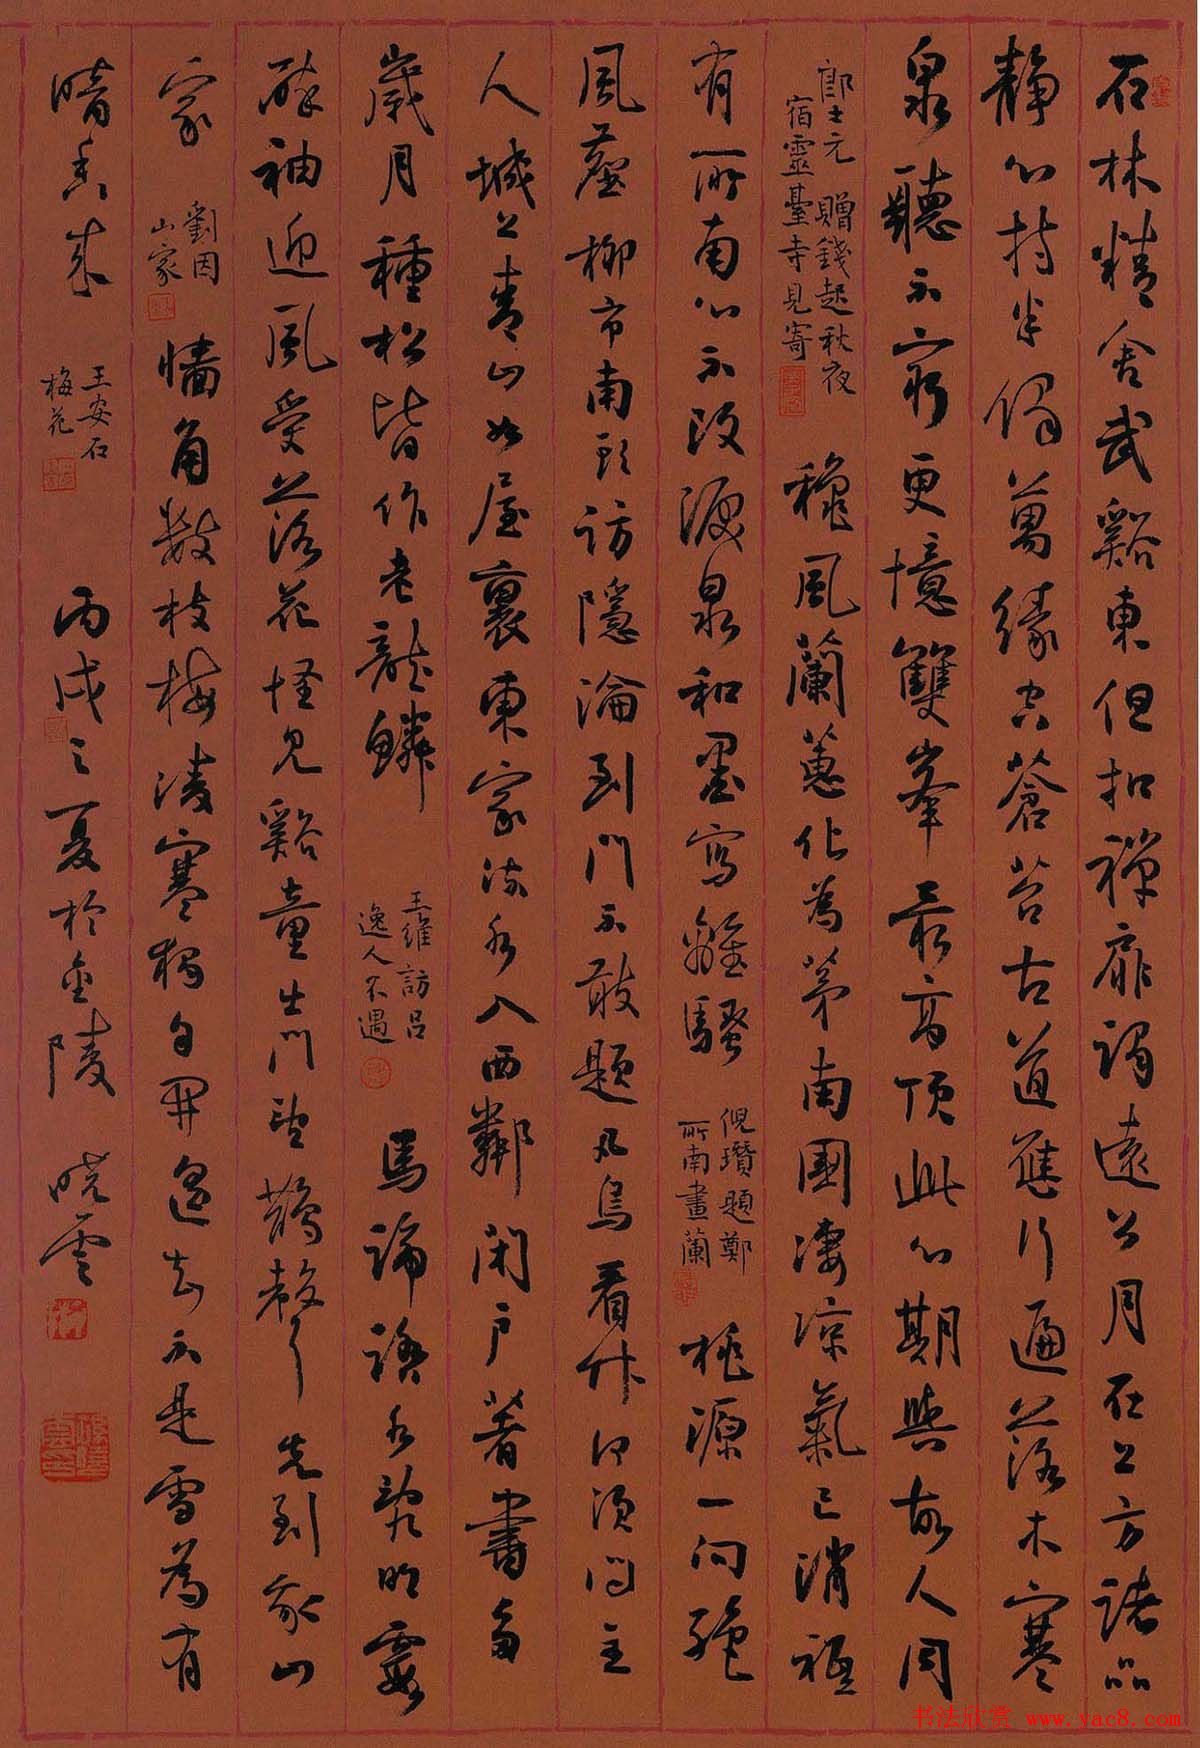 石林精舍武谿東但扣禪扉謁遠公月在上方諸品
靜心持半偈萬緣空蒼苔古道應行遍落木寒
泉聽不窮更憶雙峯最高頂此心期與故人同
郎士元 贈錢起秋夜
宿靈臺寺見寄
穐風蘭蕙化為茅南國淒涼氣已消祗
有所南心不改淚泉和墨寫離騷
倪瓚題鄭
所南畫蘭
桃源一向絶
風塵柳市南頭訪隱淪到門不敢題凡鳥看竹何須問主
人城上青山如屋裏東家流水入西鄰閉戶著書多
歲月種松皆作老龍鱗
王維 訪呂
逸人不遇
馬蹄踏水亂明霞
醉袖迎風受落花怪見谿童出門望鵲聲先到我山
家
劉因
山家
墻角數枝梅凌寒獨自開遥知不是雪為有
暗香來
王安石
梅花
丙戌之夏於金陵 曉雲
书法欣赏 www.yac8.com